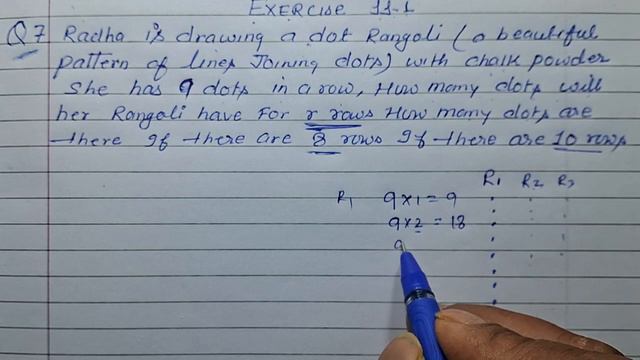 EXERCISE 11.1
Q7 Radha is drawing a dot Rangoli (a beautiful
pattern of lines Joining dots) with chalk powder
She has 9 dots in a row, How many dots will
her Rangoli have For r rows How many dots are
there If there are 8 rows If there are 10 rows
R1 R2 R3
R1 9×1 = 9
9×2 = 18
9